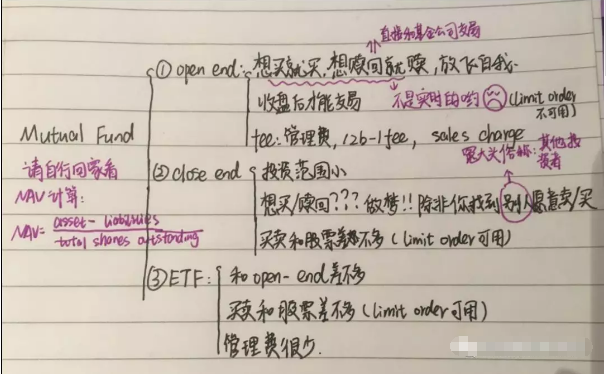 直接和基金公司交易
① open end: 想买就买, 想赎回就赎, 放飞自我.
收盘后才能交易
不是实时的哟 (limit order 不可用)
fee: 管理费, 12b-1 fee, sales charge
Mutual Fund
请自行回家看
NAV 计算:
NAV = asset - liabilities
total shares outstanding
② close end
投资范围小
冤大头俗称: 其他投资者
想买/赎回??? 做梦!! 除非你找到别人愿意卖/买
买卖和股票差不多 (limit order 可用)
③ ETF:
和open-end差不多
买卖和股票差不多 (limit order 可用)
管理费很少.